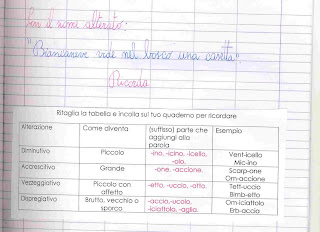 "Biancaneve vide nel bosco una casetta".
Ricorda
Ritaglia la tabella e incolla sul tuo quaderno per ricordare
Alterazione Come diventa (suffisso) parte che aggiungi alla parola Esempio
Diminutivo Piccolo -ino, -icino, -icello, -olo. Vent-icello Mic-ino
Accrescitivo Grande -one, -accione. Scarp-one Om-accione
Vezzeggiativo Piccolo con affetto -etto, -uccio, -otto. Tett-uccio Bimb-etto
Dispregiativo Brutto, vecchio o sporco -accio, -ucolo, -iciattolo, -aglio. Om-iciattolo Erb-accia